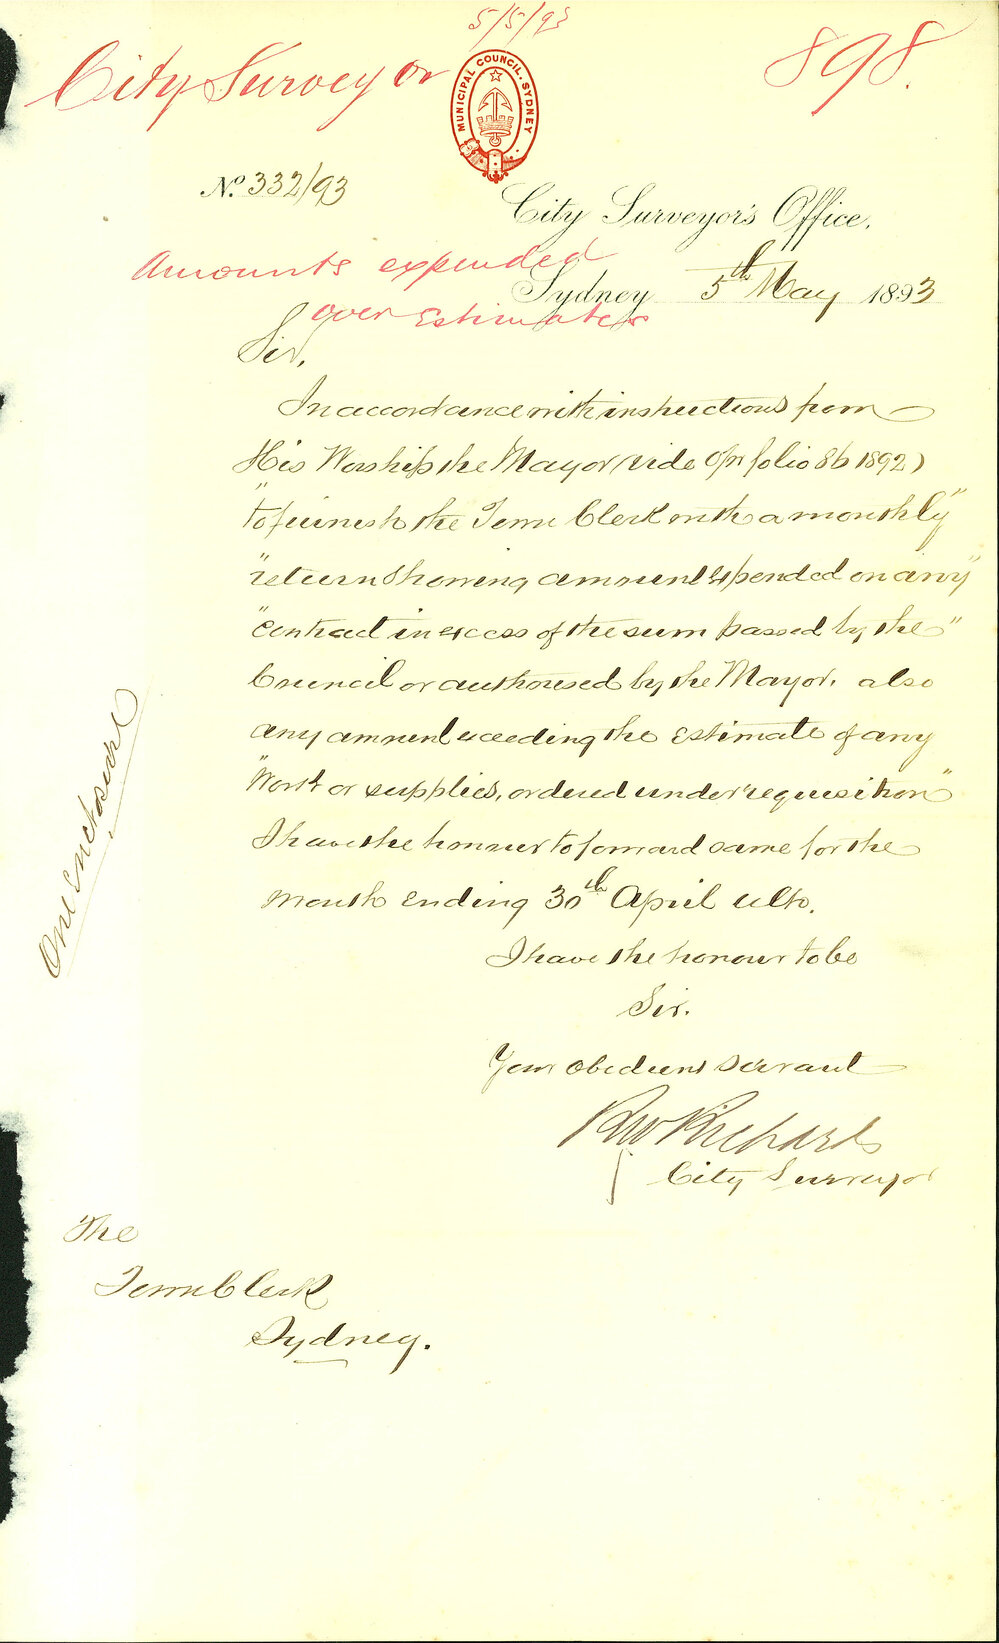 5/5/93
City Surveyor
898.
MUNICIPAL COUNCIL. SYDNEY
No. 332/93
City Surveyor's Office,
Amounts expended
Sydney 5th May 1893
over Estimates
Sir,
In accordance with instructions from
His Worship the Mayor (vide folio 86 1892)
"to furnish the Town Clerk with a monthly"
"return showing amount expended on any"
"contract in excess of the sum passed by the"
Council or authorised by the Mayor. also
any amount exceeding the Estimate of any
"Work or supplies, ordered under requisition"
I have the honour to forward same for the
month ending 30th April ulto.
I have the honour to be
Sir.
Your obedient servant
RW Richards
City Surveyor
One Enclosure
The
Town Clerk
Sydney.